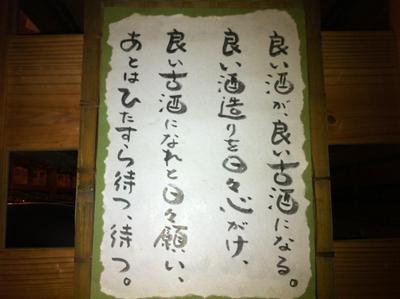 良い酒が、良い古酒になる。
良い酒造りを日々心がけ、
良い古酒になれと日々願い、
あとはひたすら待つ、待つ。